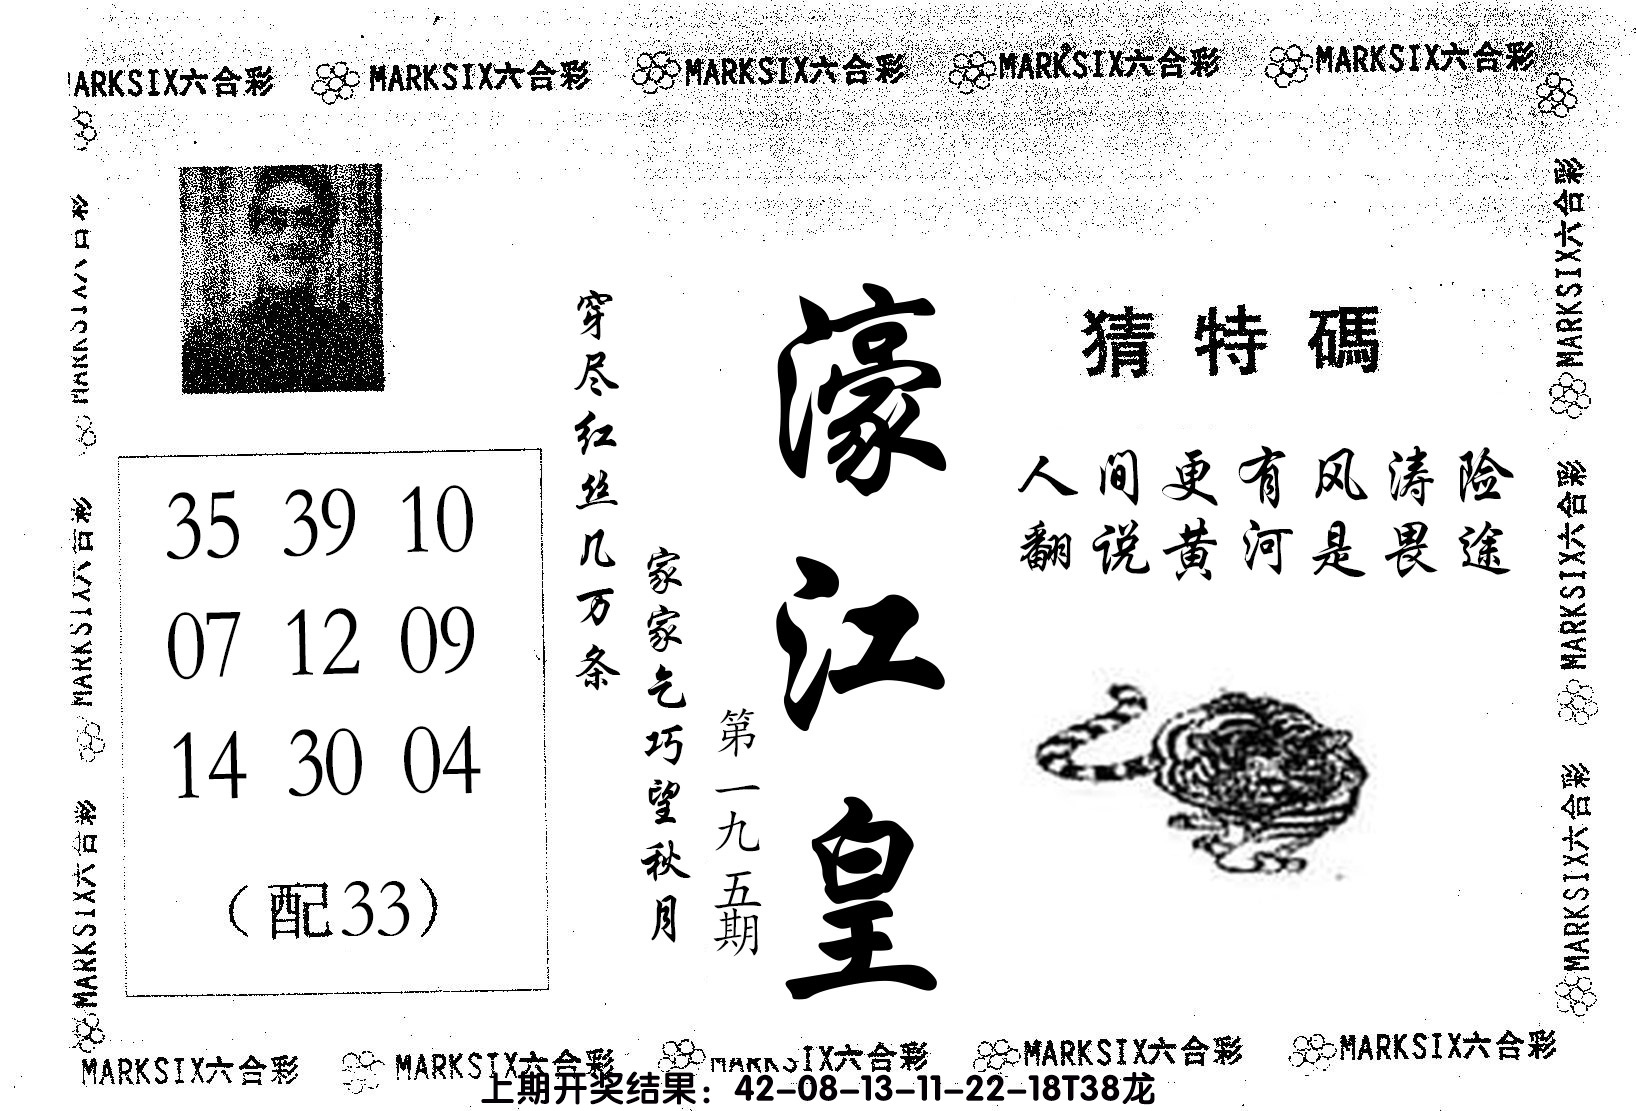 MARKSIX六合彩 MARKSIX六合彩 MARKSIX六合彩 MARKSIX六合彩 MARKSIX六合彩
MARKSIX六合彩
MARKSIX六合彩
MARKSIX六合彩
35 39 10
07 12 09
14 30 04
（配33）
穿尽红丝几万条
家家乞巧望秋月
第一九五期
濠江皇
猜特碼
人间更有风涛险
翻说黄河是畏途
MARKSIX六合彩
MARKSIX六合彩
MARKSIX六合彩
MARKSIX六合彩 MARKSIX六合彩 MARKSIX六合彩 MARKSIX六合彩 MARKSIX六合彩
上期开奖结果：42-08-13-11-22-18T38龙